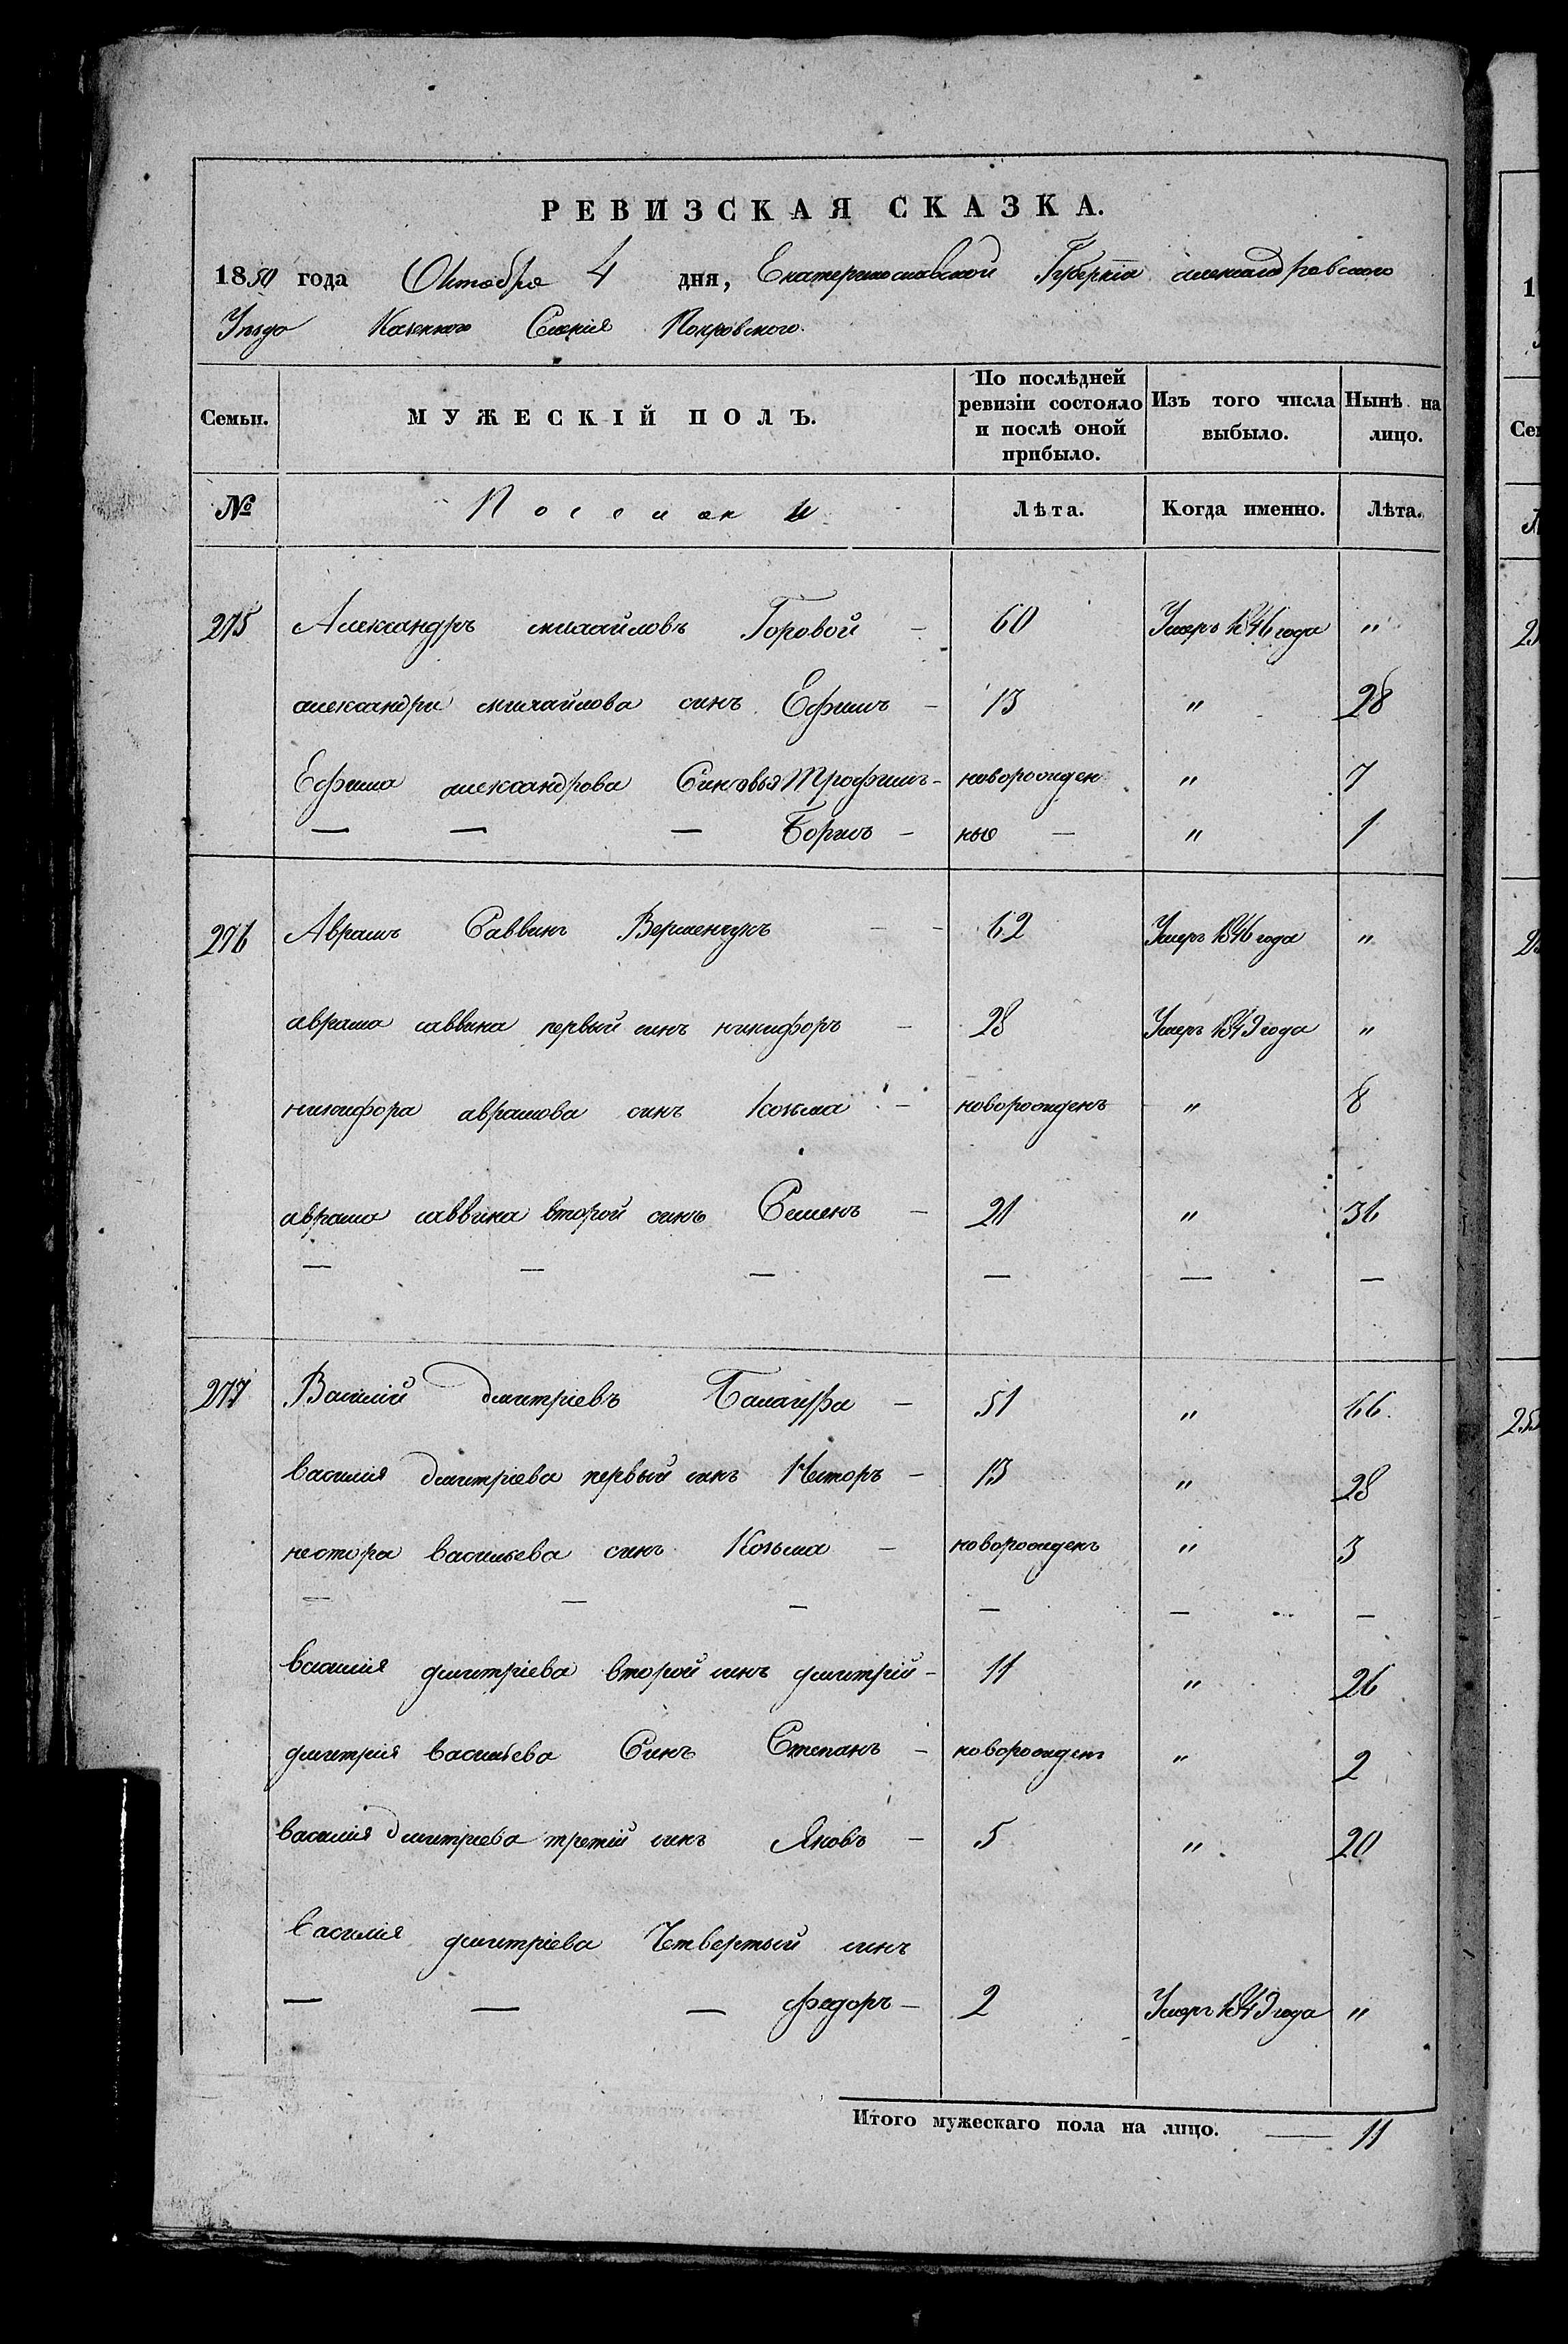 РЕВИЗСКАЯ СКАЗКА.
1850 года Октября 4 дня, Екатеринославской Губернiи александровского
Уѣзда Казенного Селенiя Покровского.
Семьи. МУЖЕСКІЙ ПОЛЪ. По послѣдней ревизіи состояло и послѣ оной прибыло. Изъ того числа выбыло. Нынѣ на лицо.
№ Поселяни Лѣта. Когда именно. Лѣта.
275 Александръ михайловъ Горовой — 60 Умеръ 1846 года "
александра михайлова синъ Ефимъ — 13 " 28
Ефима александрова Синовья Трофимъ — новорожден " 7
— — — Борисъ — ные — " 1
276 Аврамъ Саввинъ Верменчукъ — — 62 Умеръ 1846 года "
аврама саввина первый синъ никифоръ — 28 Умеръ 1849 года "
никифора аврамова синъ Козьма — новорожденъ " 8
аврама саввина второй синъ Семенъ — 21 " 36
— — — — — —
277 Василiй дмитрiевъ Балагура — 51 " 66.
василия дмитрiева первый синъ Несторъ — 13 " 28
нестора васильева синъ Козьма — новорожденъ " 3
— — — — — —
василия дмитрiева второй синъ дмитрiй — 11 " 26
дмитрия васильева Синъ Степанъ — новорожденъ " 2
василия дмитриева третiй синъ Яковъ — 5 " 20
василия дмитрiева Четвертый синъ
— — — федоръ — 2 Умеръ 1849 года "
Итого мужескаго пола на лицо. — 11